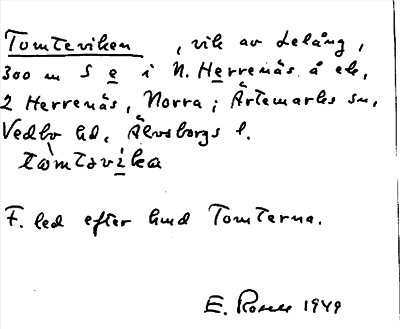 Tomteviken , vik av Lelång,
300 m S e i N. Herrenäs å ek,
2 Herrenäs, Norra; Ärtemarks sn,
Vedbo hd, Älvsborgs l.
tòmtəvìka
F. led efter hmd Tomterna.
E. Rosell 1949